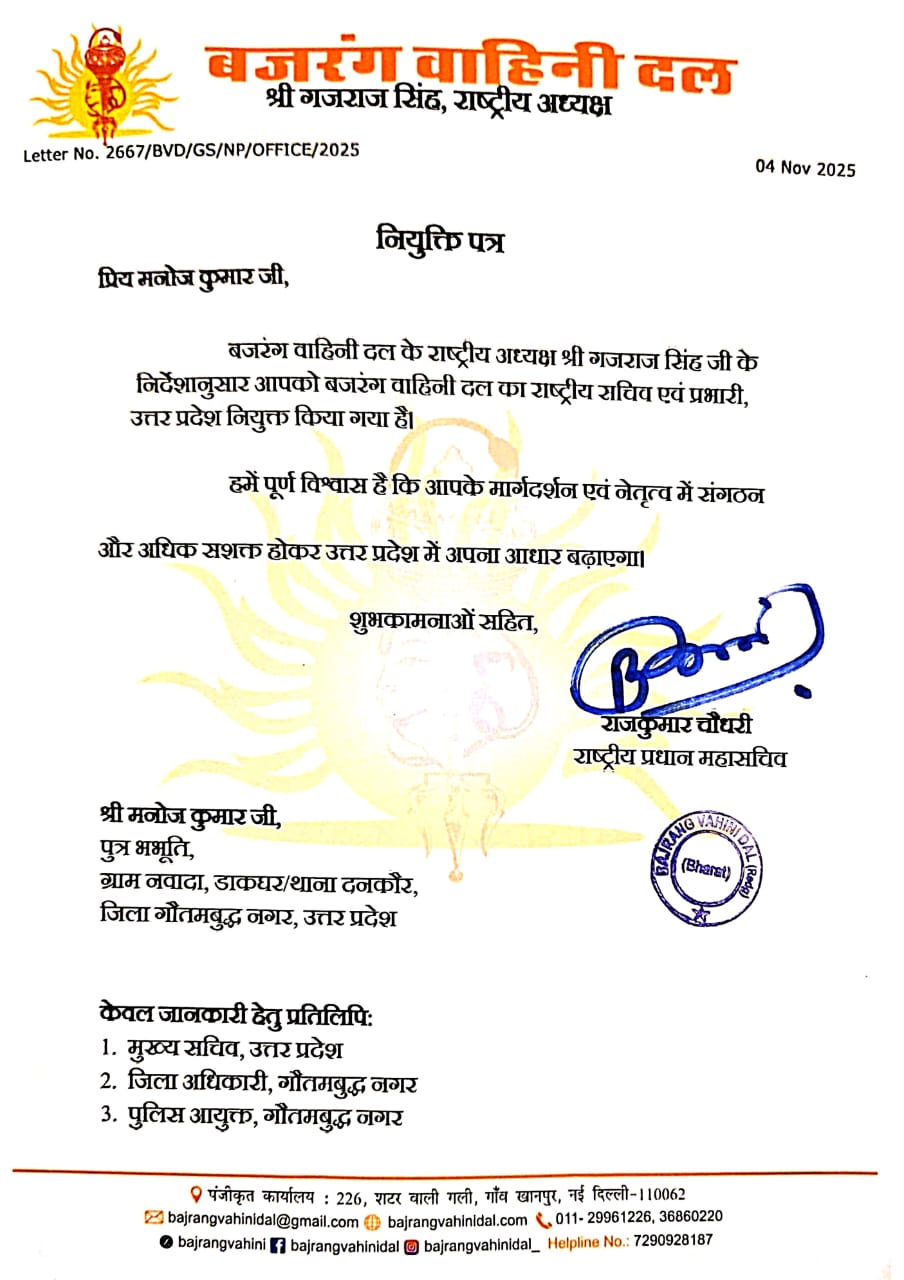 बजरंग वाहिनी दल
श्री गजराज सिंह, राष्ट्रीय अध्यक्ष
Letter No. 2667/BVD/GS/NP/OFFICE/2025
04 Nov 2025
नियुक्ति पत्र
प्रिय मनोज कुमार जी,
बजरंग वाहिनी दल के राष्ट्रीय अध्यक्ष श्री गजराज सिंह जी के
निर्देशानुसार आपको बजरंग वाहिनी दल का राष्ट्रीय सचिव एवं प्रभारी,
उत्तर प्रदेश नियुक्त किया गया है।
हमें पूर्ण विश्वास है कि आपके मार्गदर्शन एवं नेतृत्व में संगठन
और अधिक सशक्त होकर उत्तर प्रदेश में अपना आधार बढ़ाएगा।
शुभकामनाओं सहित,
राजकुमार चौधरी
राष्ट्रीय प्रधान महासचिव
श्री मनोज कुमार जी,
पुत्र भभूति,
ग्राम नवादा, डाकघर/थाना दनकौर,
जिला गौतमबुद्ध नगर, उत्तर प्रदेश
BAJRANG VAHINI DAL (Redg)
(Bharat)
केवल जानकारी हेतु प्रतिलिपि:
1. मुख्य सचिव, उत्तर प्रदेश
2. जिला अधिकारी, गौतमबुद्ध नगर
3. पुलिस आयुक्त, गौतमबुद्ध नगर
पंजीकृत कार्यालय : 226, शटर वाली गली, गाँव खानपुर, नई दिल्ली-110062
bajrangvahinidal@gmail.com bajrangvahinidal.com 011- 29961226, 36860220
bajrangvahini bajrangvahinidal bajrangvahinidal_ Helpline No.: 7290928187